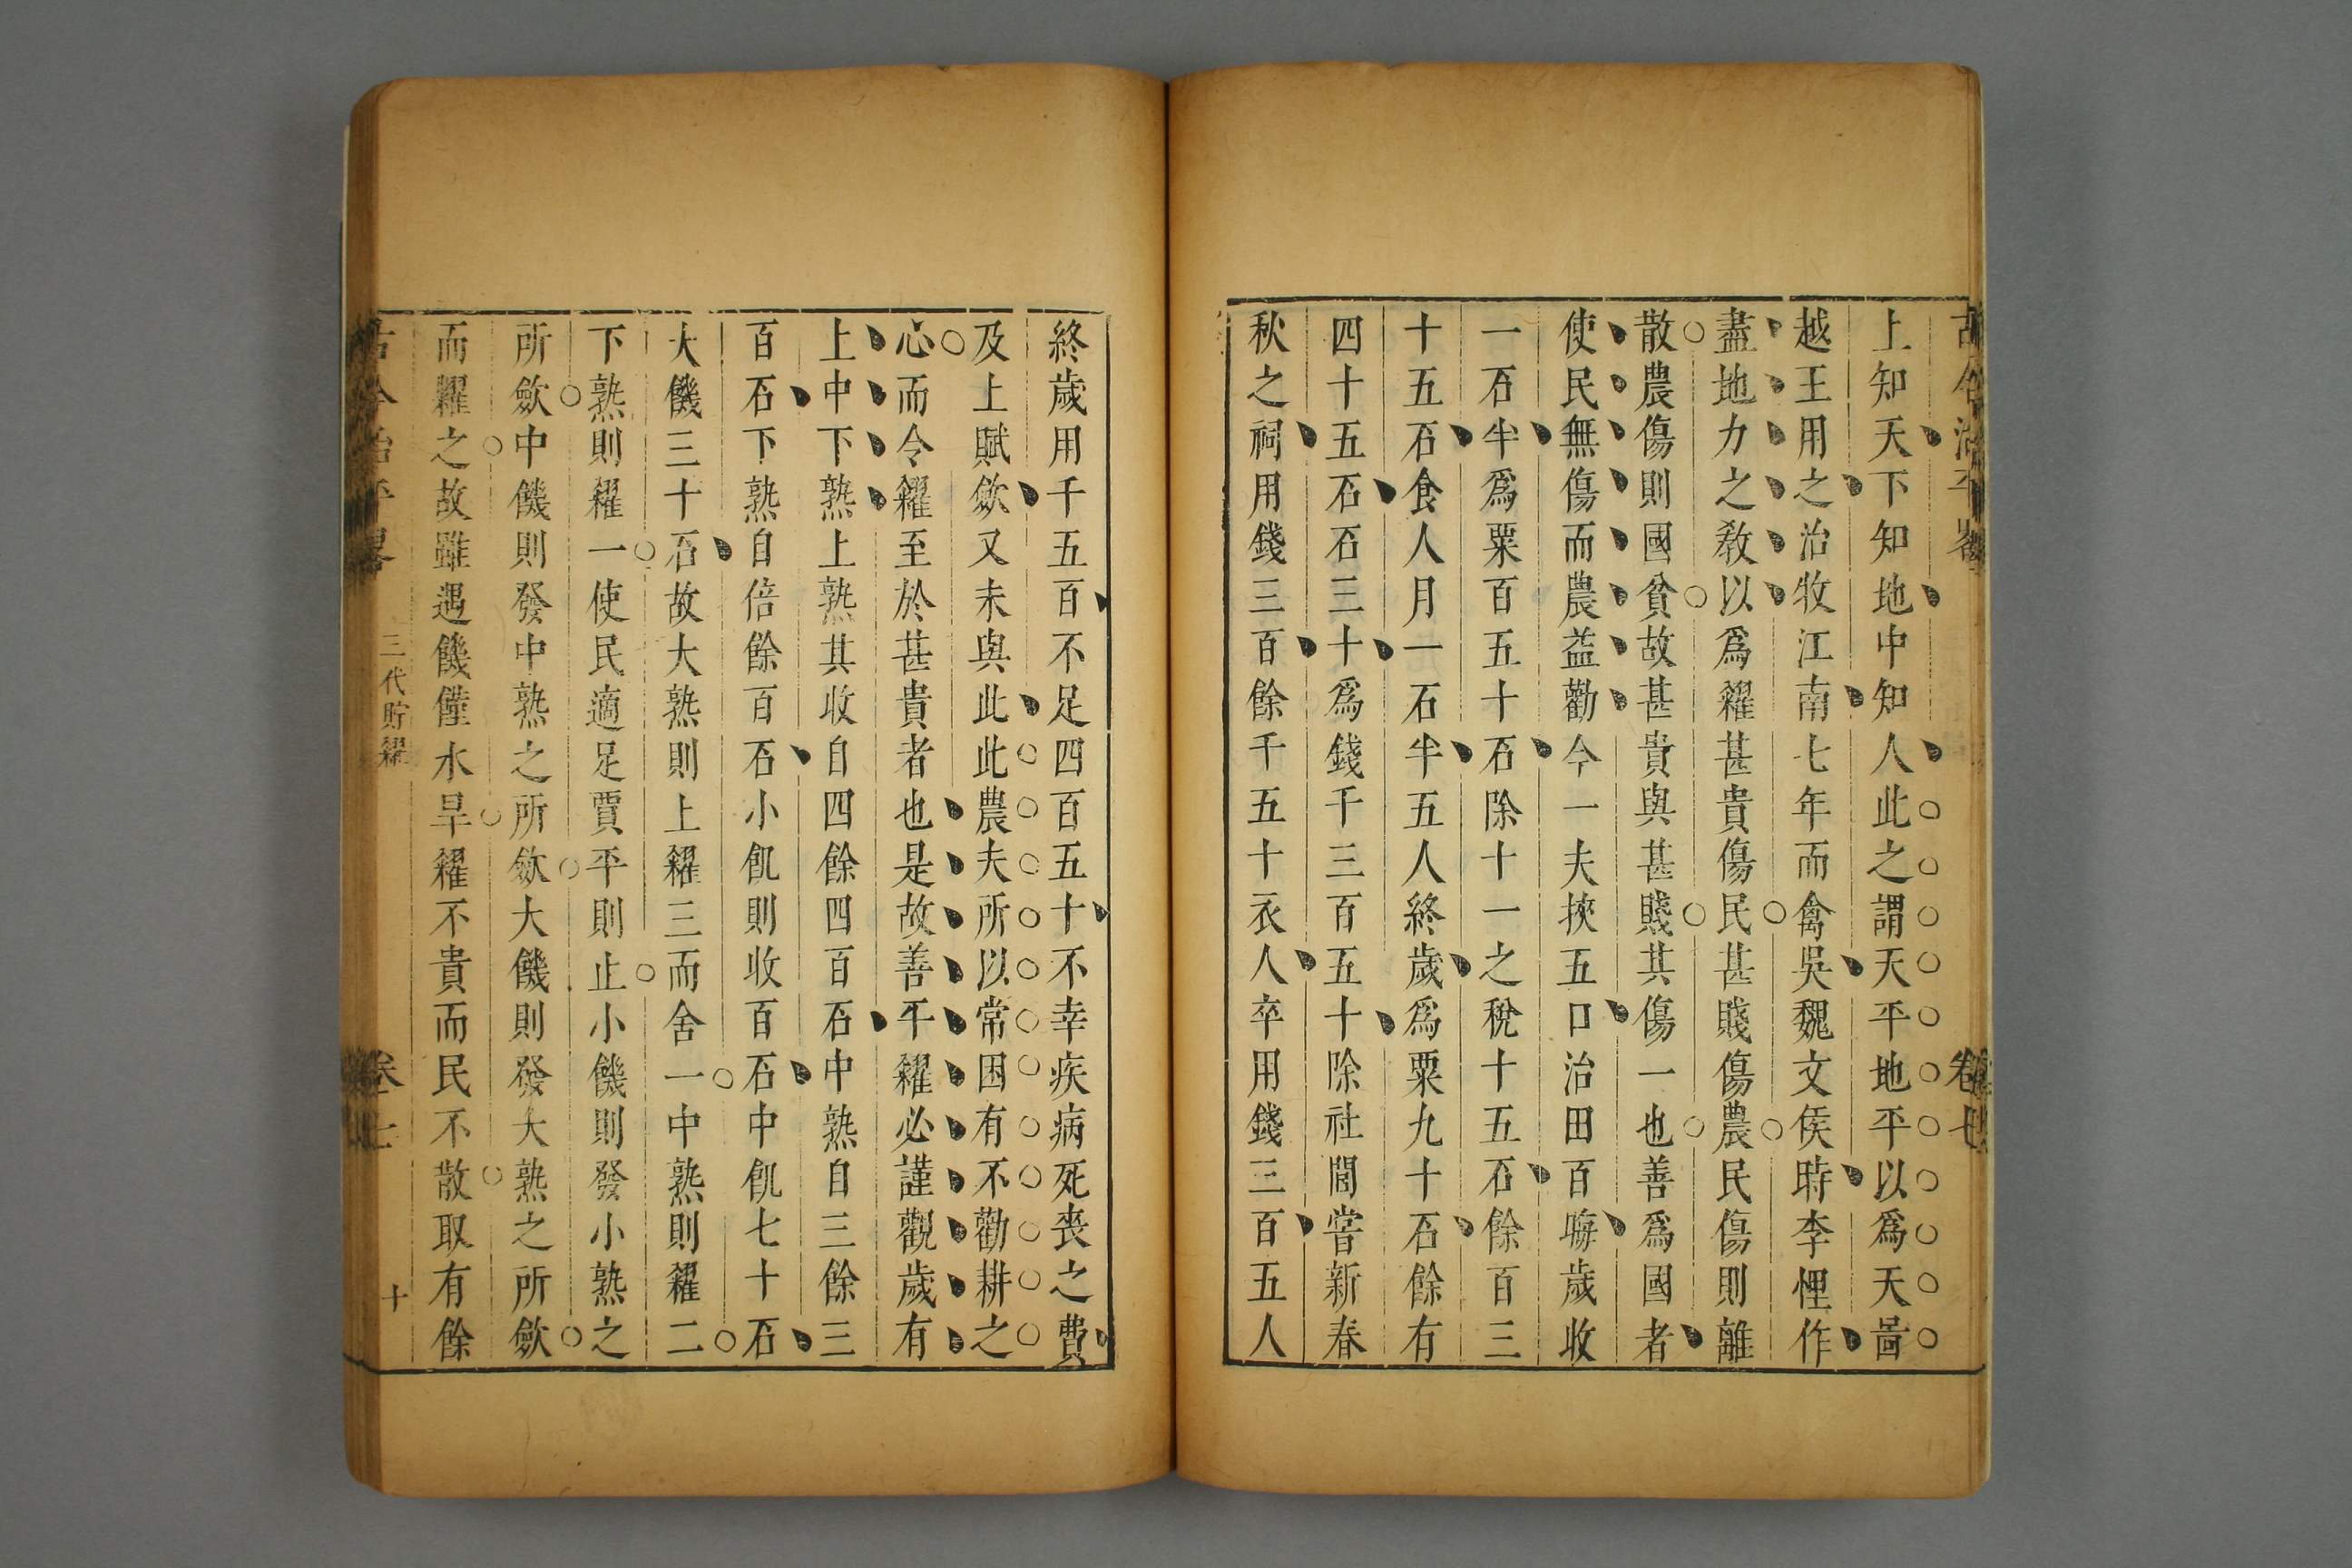 上知天下知地中知人此之謂天平地平以爲天啚
越王用之治牧江南七年而禽吳魏文侯時李悝作
盡地力之教以爲糴甚貴傷民甚賤傷農民傷則離
散農傷則國貧故甚貴與甚賤其傷一也善爲國者
使民無傷而農益勸今一夫挾五口治田百畮歲收
一石半爲粟百五十石除十一之稅十五石餘百三
十五石食人月一石半五人終歲爲粟九十石餘有
四十五石石三十爲錢千三百五十除社閭嘗新春
秋之祠用錢三百餘千五十衣人卒用錢三百五人
終歲用千五百不足四百五十不幸疾病死喪之費
及上賦斂又未與此此農夫所以常困有不勸耕之
心而令糴至於甚貴者也是故善平糴必謹觀歲有
上中下熟上熟其收自四餘四百石中熟自三餘三
百石下熟自倍餘百石小飢則收百石中飢七十石
大饑三十石故大熟則上糴三而舍一中熟則糴二
下熟則糴一使民適足賈平則止小饑則發小熟之
所斂中饑則發中熟之所斂大饑則發大熟之所斂
而糶之故雖遇饑饉水旱糴不貴而民不散取有餘
古今治平畧
三代貯糴
卷十七
十